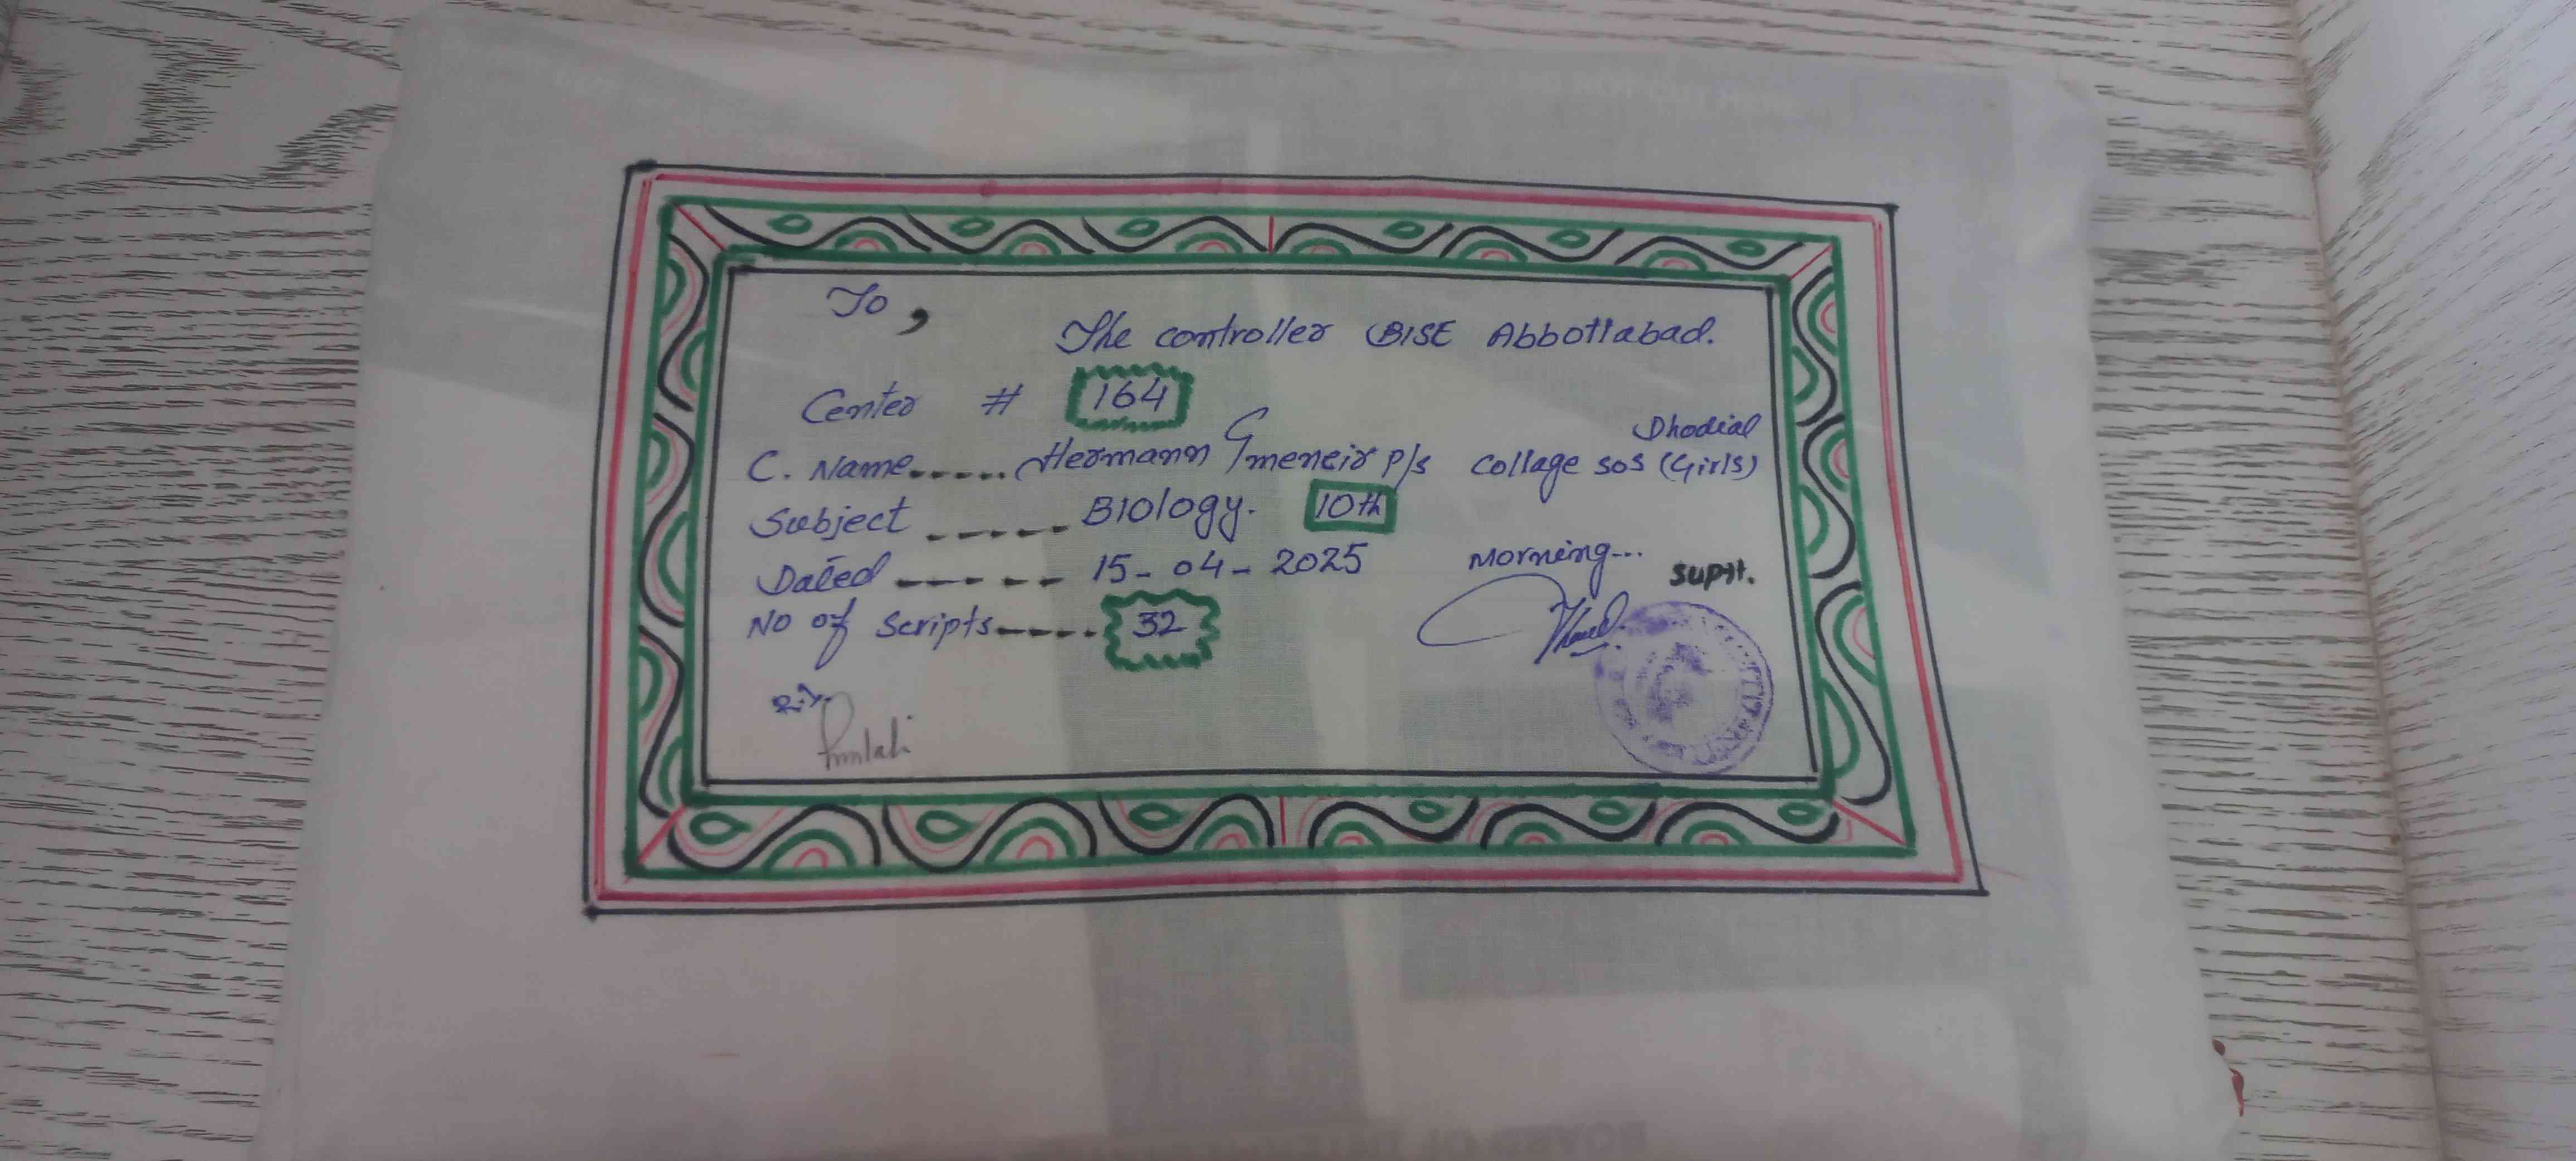 To,
The controller BISE Abbottabad.
Center # 164
Dhodial
C. Name..... Hermann Gmeneir p/s Collage SOS (Girls)
Subject ----- Biology. 10th
Dated ----- 15-04-2025 Morning...
Suptt.
No of Scripts---- 32